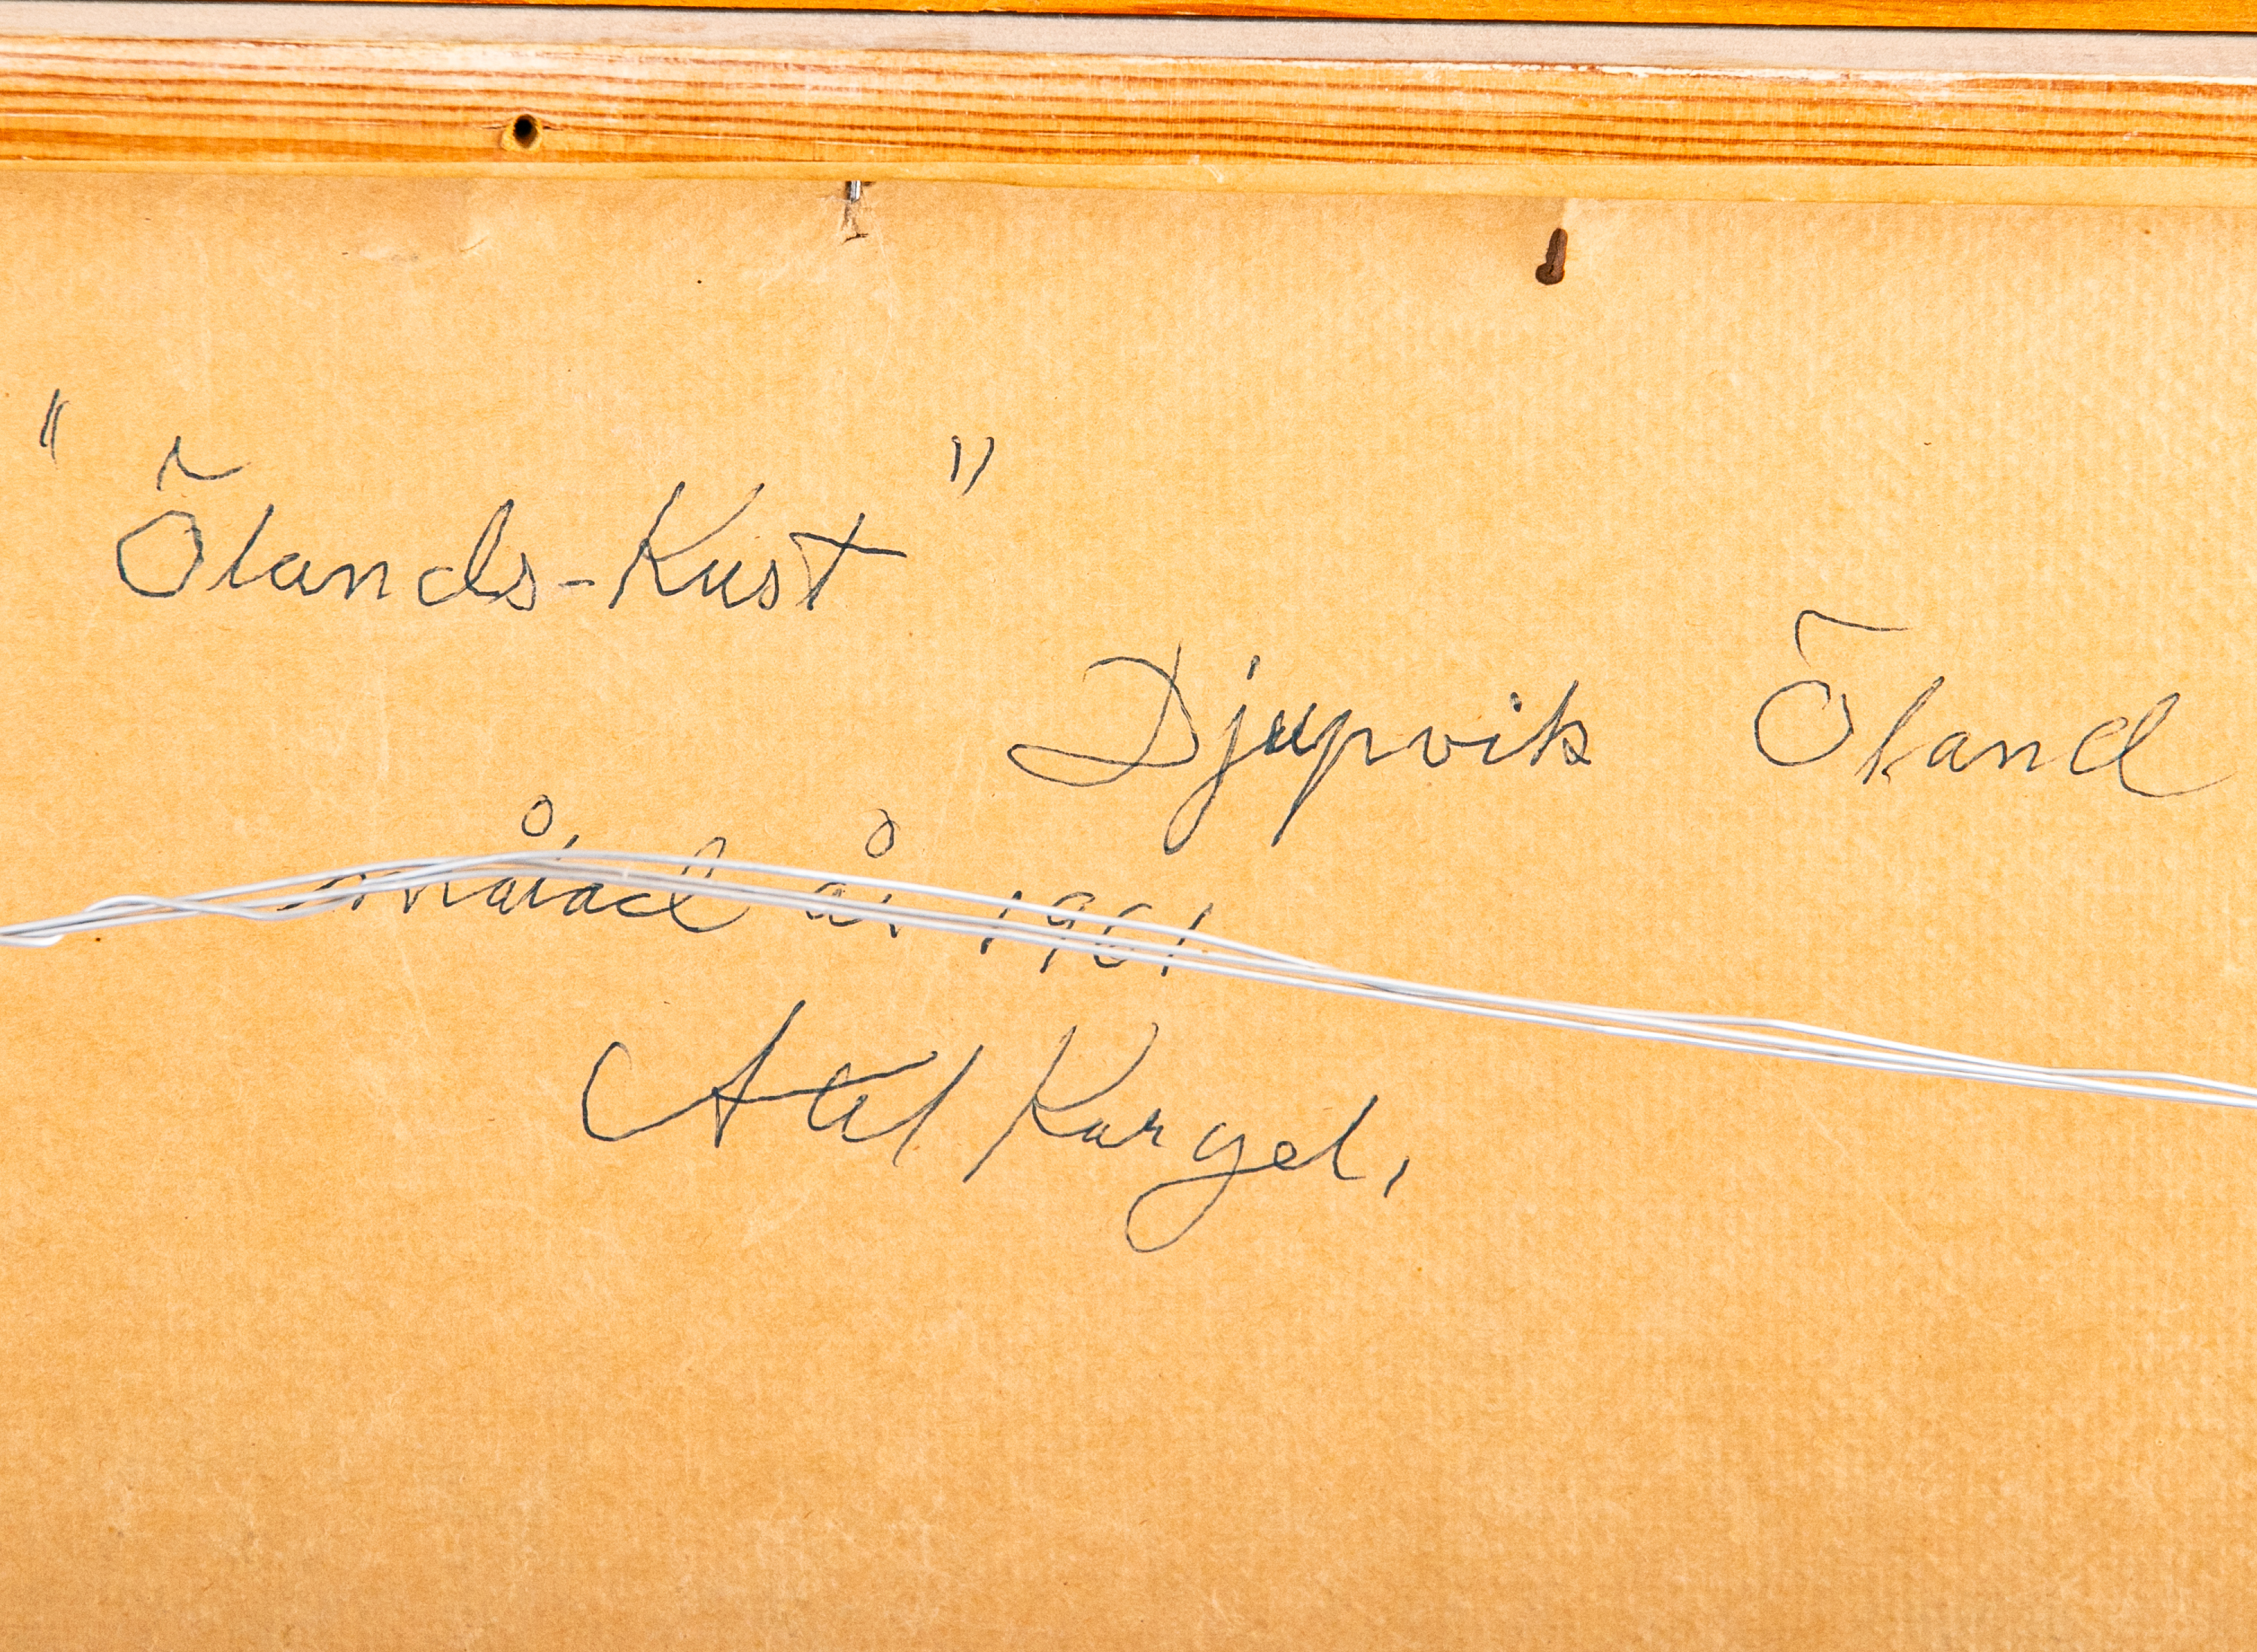 "Ölands-Kust"
Djupvik Öland
målad år 1961
Axel Kargel.